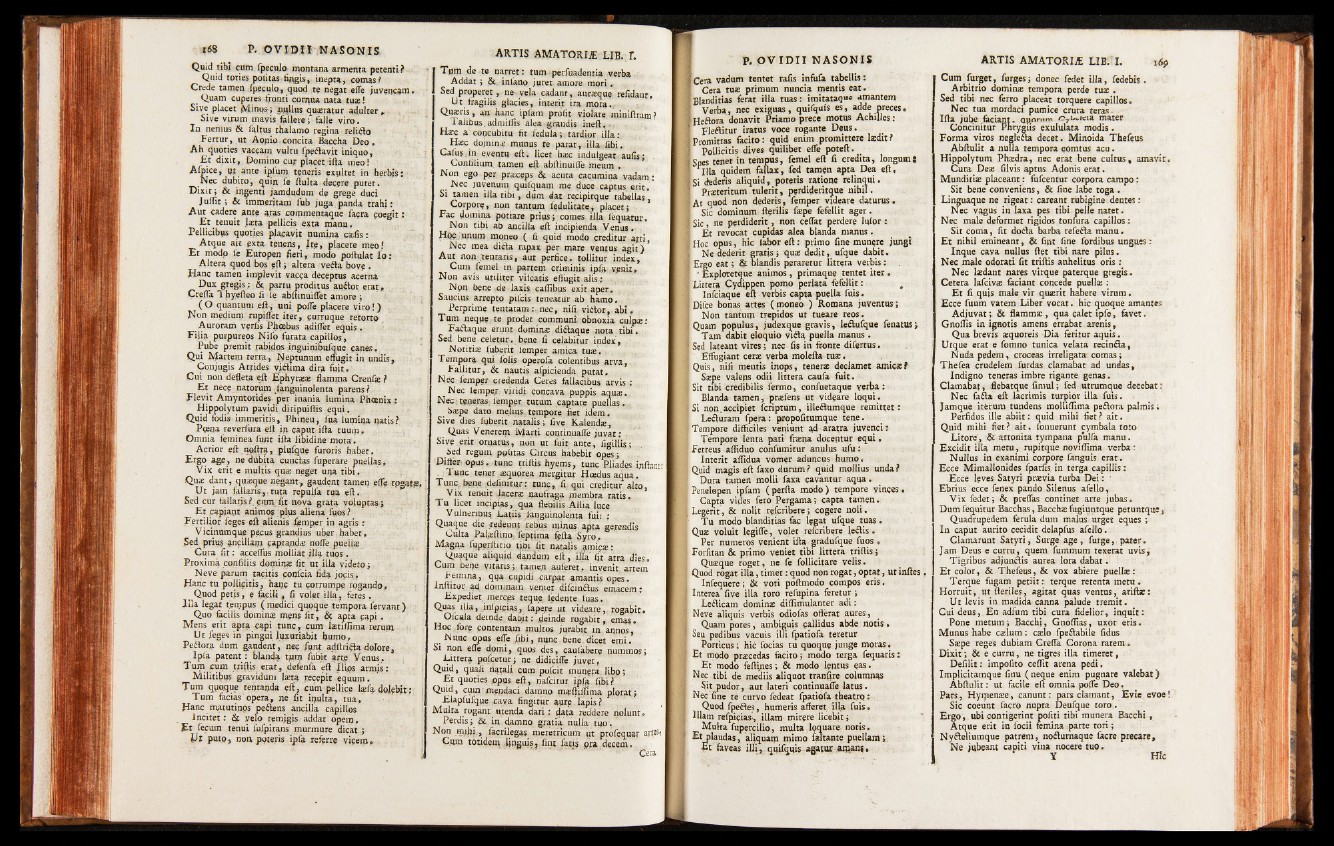 168 P. OVIDII NASONIS
Quid tibi cum ſpeculo montana armenta petenti?
Quid toties poſitas fingis, inepta, comas?
Crede tamen ſpeculo, quod te negat eſſe juvencam.
Quam cuperes fronti cornua nata tuæ!
Sive placet Minos; nullus quæratur adulter,
Sive virum mavis fallere; falle viro.
In nemus & ſaltus thalamo regina relicto
Fertur, ut Aonio concita Baccha Deo.
Ah quoties vaccam vultu ſpectavit iniquo,
Et dixit, Domino cur placet iſta meo!
Aſpice, ut ante ipſum teneris exultet in herbis:
Nec dubito, quin ſe ſtulta decere putet.
Dixit; & ingenti jamdudum de grege duci
Juſſit; & immeritam ſub juga panda trahi:
Aut cadere ante aras commentaque ſacra coegit:
Et tenuit læta pellicis exta manu.
Pellicibus quoties placavit numina cæſis:
Atque ait exta tenens, Ite, placete meo!
Et modo ſe Europen fieri, modo poſtulat Io:
Altera quod bos eſt; altera vecta bove.
Hanc tamen implevit vacca deceptus acerna
Dux gregis: & partu proditus auctor erat.
Creſſa Thyeſteo ſi ſe abſtinuiſſet amore;
(O quantum eſt, uni poſſe placere viro!)
Non medium rupiſſet iter, curruque retorto
Auroram verſis Phœbus adiſſet equis.
Filia purpureos Niſo furata capillos,
Pube premit rabidos inguinibuſque canes.
Qui Martem terra, Neptunum effugit in undis,
Conjugis Atrides victima dira fuit.
Cui non defleta eſt Ephyrææ flamma Creuſæ?
Et nece natorum ſanguinolenta parens?
Flevit Amyntorides per inania lumina Phœnix:
Hippolytum pavidi diripuiſtis equi.
Quid fodis immeritis, Phineu, ſua lumina natis?
Pœna reverſura eſt in caput iſta tuum.
Omnia feminea ſunt iſta libidine mota.
Acrior eſt noſtra, pluſque furoris habet.
Ergo age, ne dubita cunctas ſuperare puellas.
Vix erit e multis quæ neget una tibi.
Quæ dant, quæque negant, gaudent tamen eſſe rogatæ.
Ut jam fallaris, tuta repulſa tua eſt.
Sed cur fallaris? cum ſit nova grata voluptas;
Et capiant animos plus aliena ſuos?
Fertilior ſeges eſt alienis ſemper in agris:
Vicinumque pecus grandius uber habet.
Sed prius ancillam captandæ noſſe puellæ
Cura ſit: acceſſus molliat illa tuos.
Proxima conſiliis dominæ ſit illa videto;
Neve parum tacitis conſcia fida jocis.
Hanc tu pollicitis, hanc tu corrumpe rogando,
Quod petis, e facili, ſi volet illa, feres.
Illa legat tempus (medici quoque tempora ſervant)
Quo facilis dominæ mens ſit, & apta capi.
Mens erit apta capi tunc, cum lætiſſima rerum
Ut ſeges in pingui luxuriabit humo,
Pectora dum gaudent, nec ſunt adſtricta dolore,
Ipſa patent: blanda tum ſubit arte Venus.
Tum cum triſtis erat, defenſa eſt Ilios armis:
Militibus gravidum læta recepit equum.
Tum quoque tentanda eſt, cum pellice læſa dolebit:
Tum facias opera, ne ſit inulta, tua.
Hanc matutinos pectens ancilla capillos
Incitet: & velo remigis addat opem.
Et ſecum tenui ſuſpirans murmure dicat;
Ut puto, non poteris ipſa referre vicem.
ARTIS AMATORIÆ LIB. I.
Tum de te narret: tum perſuadentia verba
Addat; & inſano juret amore mori.
Sed properet, ne vela cadant, auræque reſidant.
Ut fragilis glacies, interit ira mora.
Quæris, an hanc ipſam proſit violare miniſtram?
Talibus admiſſis alea grandis ineſt.
Hæc a concubitu fit ſedula; tardior illa:
Hæc dominæ munus te parat, illa ſibi.
Caſus in eventu eſt. licet hæc indulgeat auſis;
Conſilium tamen eſt abſtinuiſſe meum.
Non ego per præceps & acuta cacumina vadam:
Nec juvenum quiſquam me duce captus erit.
Si tamen illa tibi, dum dat recipitque tabellas,
Corpore, non tantum ſedulitate, placet;
Fac domina potiare prius; comes illa ſequatur.
Non tibi ab ancilla eſt incipienda Venus.
Hoc unum moneo (ſi quid modo creditur arti,
Nec mea dicta rapax per mare ventus agit)
Aut non tentaris, aut perfice. tollitur index,
Cum ſemel in partem criminis ipſa venit.
Non avis utiliter viſcatis effugit alis:
Non bene de laxis caſſibus exit aper.
Saucius arrepto piſcis teneatur ab hamo.
Perprime tentatam: nec, niſi victor, abi.
Tum neque te prodet communi obnoxia culpæ:
Factaque erunt dominæ dictaque nota tibi.
Sed bene celetur. bene ſi celabitur index,
Notitiæ ſuberit ſemper amica tuæ.
Tempora qui ſolis operoſa colentibus arva,
Fallitur, & nautis aſpicienda putat.
Nec ſemper credenda Ceres fallacibus arvis:
Nec ſemper viridi concava puppis aquæ.
Nec teneras ſemper tutum captare puellas.
Sæpe dato melius tempore fiet idem.
Sive dies ſuberit natalis; ſive Kalendæ,
Quas Venerem Marti continuaſſe juvat:
Sive erit ornatus, non ut fuit ante, ſigillis;
Sed regum poſitas Circus habebit opes;
Differ opus. tunc triſtis hyems, tunc Pliades inſtant:
Tunc tener æquorea mergitur Hœdus aqua.
Tunc bene deſinitur: tunc, ſi qui creditur alto,
Vix tenuit laceræ naufraga membra ratis.
Tu licet incipias, qua flebilis Allia luce
Vulneribus Latiis ſanguinolenta fuit:
Quaque die redeunt rebus minus apta gerendis
Culta Palæſtino ſeptima feſta Syro.
Magna ſuperſtitio tibi ſit natalis amicæ:
Quaque aliquid dandum eſt, illa ſit atra dies.
Cum bene vitaris; tamen auferet. invenit artem
Femina, qua cupidi carpat amantis opes.
Inſtitor ad dominam veniet diſcinctus emacem:
Expediet merces teque ſedente ſuas.
Quas illa, inſpicias, ſapere ut videare, rogabit.
Oſcula deinde dabit: deinde rogabit, emas.
Hoc fore contentam multos jurabit in annos,
Nunc opus eſſe ſibi, nunc bene dicet emi.
Si non eſſe domi, quos des, cauſabere nummos;
Littera poſcetur; ne didiciſſe juvet,
Quid, quaſi natali cum poſcit munera libo;
Et quoties opus eſt, naſcitur ipſa ſibi?
Quid, cum mendaci damno mæſtiſſima plorat;
Elapſuſque cava fingitur aure lapis?
Multa rogant utenda dari: data reddere nolunt.
Perdis; & in damno gratia nulla tuo.
Non mihi, ſacrilegas meretricum ut proſequar artes,
Cum totidem linguis, ſint ſatis ora decem.
Cera
P. OVIDII NASONIS
Cera vadum tentet raſis infuſa tabellis:
Cera tuæ primum nuncia mentis eat.
Blanditias ferat illa tuas: imitataque amantem
Verba, nec exiguas, quiſquis es, adde preces.
Hectora donavit Priamo prece motus Achilles:
Flectitur iratus voce rogante Deus.
Promittas facito: quid enim promittere lædit?
Pollicitis dives quilibet eſſe poteſt.
Spes tenet in tempus, ſemel eſt ſi credita, longum:
Illa quidem fallax, ſed tamen apta Dea eſt,
Si dederis aliquid, poteris ratione relinqui.
Præteritum tulerit, perdideritque nihil.
At quod non dederis, ſemper videare daturus.
Sic dominum ſterilis ſæpe fefellit ager.
Sic, ne perdiderit, non ceſſat perdere luſor:
Et revocat cupidas alea blanda manus.
Hoc opus, hic labor eſt: primo ſine munere jungi
Ne dederit gratis; quæ dedit, uſque dabit.
Ergo eat; & blandis peraretur littera verbis:
Exploretque animos, primaque tentet iter.
Littera Cydippen pomo perlata fefellit:
Inſciaque eſt verbis capta puella ſuis.
Diſce bonas artes (moneo) Romana juventus;
Non tantum trepidos ut tueare reos.
Quam populus, judexque gravis, lectuſque ſenatus;
Tam dabit eloquio victa puella manus.
Sed lateant vires; nec ſis in fronte diſertus.
Effugiant ceræ verba moleſta tuæ.
Quis, niſi mentis inops, teneræ declamet amicæ?
Sæpe valens odii littera cauſa fuit.
Sit tibi credibilis ſermo, conſuetaque verba:
Blanda tamen, præſens ut videare loqui.
Si non accipiet ſcriptum, illectumque remittet:
Lecturam ſpera: propoſitumque tene.
Tempore difficiles veniunt ad aratra juvenci:
Tempore lenta pati fræna docentur equi.
Ferreus aſſiduo conſumitur anulus uſu:
Interit aſſidua vomer aduncus humo.
Quid magis eſt ſaxo durum? quid mollius unda?
Dura tamen molli ſaxa cavantur aqua.
Penelepen ipſam (perſta modo) tempore vinces.
Capta vides ſero Pergama; capta tamen.
Legerit, & nolit reſcribere; cogere noli.
Tu modo blanditias fac legat uſque tuas.
Quæ voluit legiſſe, volet reſcribere lectis.
Per numeros venient iſta graduſque ſuos.
Forſitan & primo veniet tibi littera triſtis;
Quæque roget, ne ſe ſollicitare velis.
Quod rogat illa, timet: quod non rogat, optat, ut inſtes.
Inſequere; & voti poſtmodo compos eris.
Interea ſive illa toro reſupina feretur;
Lecticam dominæ diſſimulanter adi:
Neve aliquis verbis odioſas offerat aures,
Quam potes, ambiguis callidus abde notis.
Seu pedibus vacuis illi ſpatioſa teretur
Porticus; hic ſocias tu quoque junge moras.
Et modo præcedas facito; modo terga ſequaris:
Et modo feſtines; & modo lentus eas.
Nec tibi de mediis aliquot tranſire columnas
Sit pudor, aut lateri continuaſſe latus.
Nec ſine te curvo ſedeat ſpatioſa theatro:
Quod ſpectes, humeris afferet illa ſuis.
Illam reſpicias, illam mirere licebit;
Multa ſupercilio, multa loquare notis.
Et plaudas, aliquam mimo ſaltante puellam;
Et faveas illi, quiſquis agatur amans.
ARTIS AMATORIÆ LIB. I. 169
Cum ſurget, ſurges; donec ſedet illa, ſedebis.
Arbitrio dominæ tempora perde tuæ.
Sed tibi nec ferro placeat torquere capillos.
Nec tua mordaci pumice crura teras.
Iſta jube faciant, quorum Cybeleïa mater
Concinitur Phrygiis exululata modis.
Forma viros neglecta decet. Minoida Theſeus
Abſtulit a nulla tempora comtus acu.
Hippolytum Phædra, nec erat bene cultus, amavit.
Cura Deæ ſilvis aptus Adonis erat.
Munditiæ placeant: fuſcentur corpora campo:
Sit bene conveniens, & ſine labe toga.
Linguaque ne rigeat: careant rubigine dentes:
Nec vagus in laxa pes tibi pelle natet.
Nec male deformet rigidos tonſura capillos:
Sit coma, ſit docta barba reſecta manu.
Et nihil emineant, & ſint ſine ſordibus ungues:
Inque cava nullus ſtet tibi nare pilus.
Nec male odorati ſit triſtis anhelitus oris:
Nec lædant nares virque paterque gregis.
Cetera laſcivæ faciant concede puellæ:
Et ſi quis male vir quærit habere virum.
Ecce ſuum vatem Liber vocat. hic quoque amantes
Adjuvat; & flammæ, qua calet ipſe, favet.
Gnoſis in ignotis amens errabat arenis,
Qua brevis æquoreis Dia feritur aquis.
Utque erat e ſomno tunica velata recincta,
Nuda pedem, croceas irreligata comas;
Theſea crudelem ſurdas clamabat ad undas,
Indigno teneras imbre rigante genas.
Clamabat, flebatque ſimul; ſed utrumque decebat:
Nec facta eſt lacrimis turpior illa ſuis.
Jamque iterum tundens molliſſima pectora palmis;
Perfidus ille abiit: quid mihi fiet? ait.
Quid mihi fiet? ait. ſonuerunt cymbala toto
Litore, & attonita tympana pulſa manu.
Excidit illa metu, rupitque noviſſima verba:
Nullus in exanimi corpore ſanguis erat.
Ecce Mimallonides ſparſis in terga capillis:
Ecce leves Satyri prævia turba Dei:
Ebrius ecce ſenex pando Silenus aſello,
Vix ſedet; & preſſas continet arte jubas.
Dum ſequitur Bacchas, Bacchæ fugiuntque petuntque,
Quadrupedem ferula dum malus urget eques;
In caput aurito cecidit delapſus aſello.
Clamarunt Satyri, Surge age, ſurge, pater.
Jam Deus e curru, quem ſummum texerat uvis,
Tigribus adjunctis aurea lora dabat.
Et color, & Theſeus, & vox abiere puellæ:
Terque fugam petiit: terque retenta metu.
Horruit, ut ſteriles, agitat quas ventus, ariſtæ:
Ut levis in madida canna palude tremit.
Cui deus, En adſum tibi cura fidelior, inquit:
Pone metum; Bacchi, Gnoſſias, uxor eris.
Munus habe cælum: cælo ſpectabile ſidus
Sæpe reges dubiam Creſſa Corona ratem.
Dixit; & e curru, ne tigres illa timeret,
Deſilit: impoſito ceſſit arena pedi.
Implicitamque ſinu (neque enim pugnare valebat)
Abſtulit: ut facile eſt omnia poſſe Deo.
Pars, Hymenæe, canunt: pars clamant, Evie evoe!
Sic coeunt ſacro nupta Deuſque toro.
Ergo, ubi contigerint poſiti tibi munera Bacchi,
Atque erit in ſocii femina parte tori;
Nycteliumque patrem, nocturnaque ſacra precare,
Ne jubeant capiti vina nocere tuo.
Y Hîc